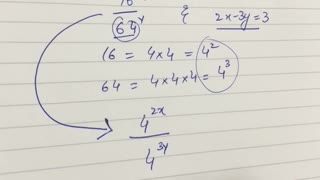 64ʸ & 2x-3y=3
16 = 4×4 = 4²
64 = 4×4×4 = 4³
4²ˣ
4³ʸ